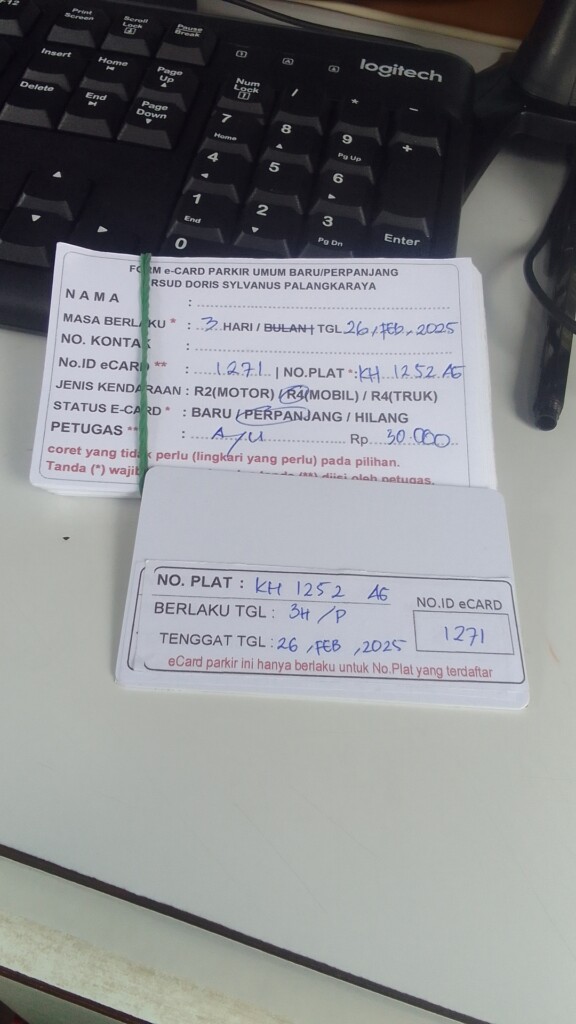 F12
Print Screen
Scroll Lock
Pause Break
Insert
Home
Page Up
Num Lock
/
*
-
logitech
Delete
End
Page Down
7 Home
8
9 Pg Up
+
4
5
6
1 End
2
3 Pg Dn
Enter
0
FORM e-CARD PARKIR UMUM BARU/PERPANJANG
RSUD DORIS SYLVANUS PALANGKARAYA
NAMA :
MASA BERLAKU * : 3 HARI / BULAN | TGL 26, FEB, 2025
NO. KONTAK :
No.ID eCARD ** : 1271 | NO.PLAT *: KH 1252 AG
JENIS KENDARAAN : R2(MOTOR) / R4(MOBIL) / R4(TRUK)
STATUS E-CARD * : BARU / PERPANJANG / HILANG
PETUGAS ** : A/U Rp 30.000
coret yang tidak perlu (lingkari yang perlu) pada pilihan.
Tanda (*) wajib tanda (**) diisi oleh petugas.
NO. PLAT : KH 1252 AG
BERLAKU TGL : 3H / P
NO.ID eCARD
1271
TENGGAT TGL : 26, FEB, 2025
eCard parkir ini hanya berlaku untuk No.Plat yang terdaftar